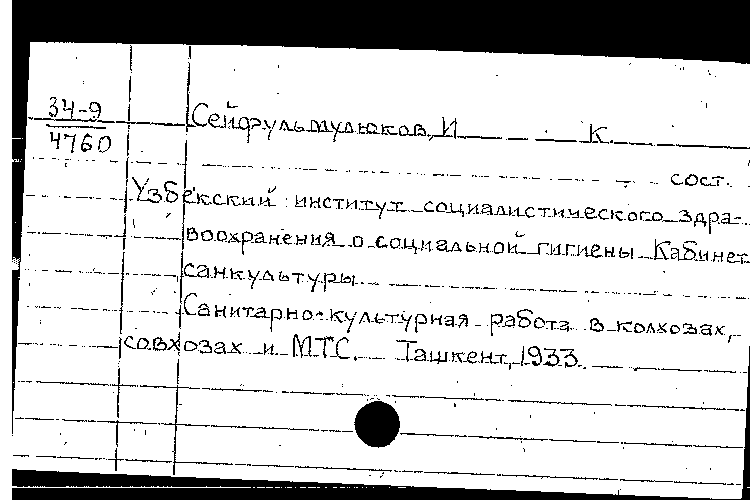 34-9
4760
Сейфульмулюков, И. К.
сост.
Узбекский институт социалистического здра-
воохранения о социальной гигиены Кабинет
санкультуры
Санитарно-культурная работа в колхозах,
совхозах и МТС. Ташкент, 1933.